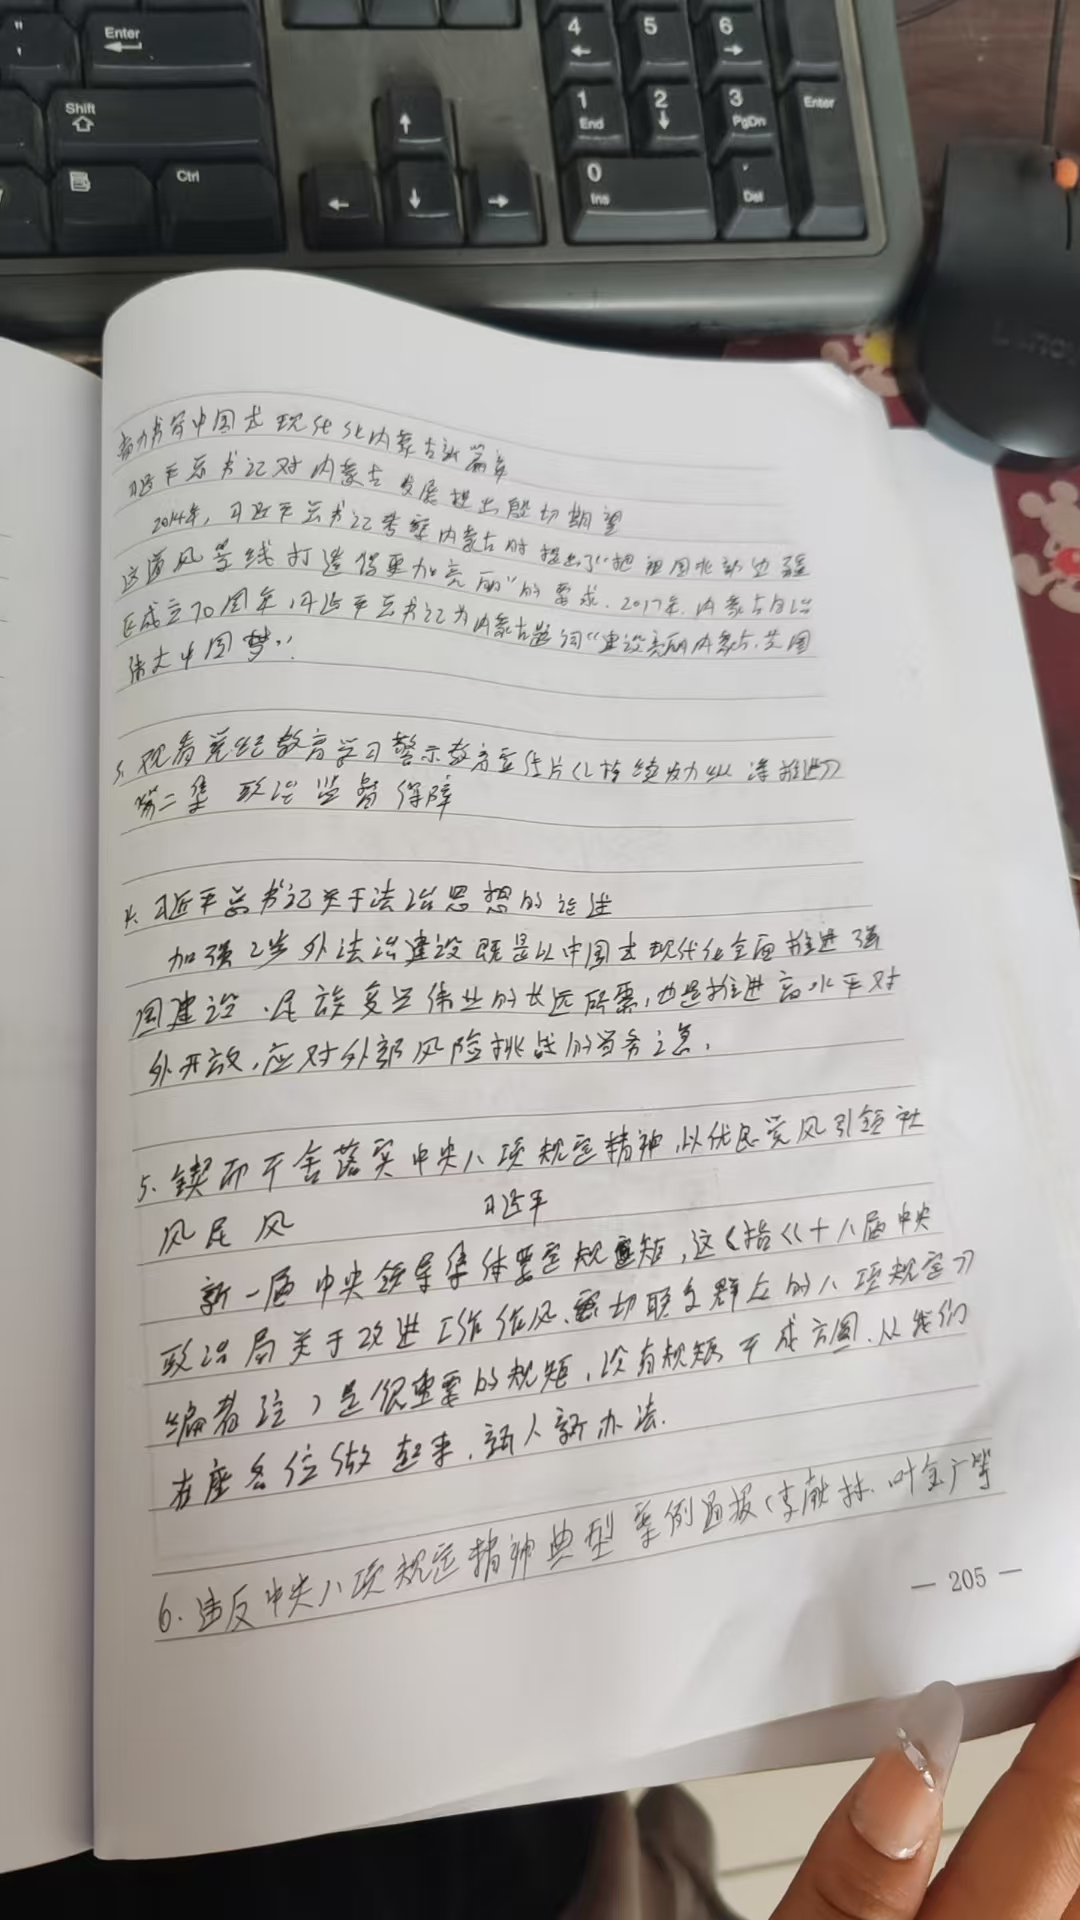 Enter
Shift
Ctrl
4 5 6
1 End 2 3 PgDn Enter
0 Ins . Del
Lenovo
奋力书写中国式现代化内蒙古新篇章
习近平总书记对内蒙古发展提出殷切期望
2014年，习近平总书记考察内蒙古时提出了“把祖国北部边疆
这道风景线打造得更加亮丽”的要求．2017年．内蒙古自治
区成立70周年，习近平总书记为内蒙古题词“建设亮丽内蒙古．共圆
伟大中国梦”．
3、观看党纪教育学习警示教育宣传片《《持续发力 纵深推进》》
第二集 政治监督保障
4. 习近平总书记关于法治思想的论述
加强涉外法治建设既是以中国式现代化全面推进强
国建设、民族复兴伟业的长远所需，也是推进高水平对
外开放，应对外部风险挑战的当务之急．
5、锲而不舍落实中央八项规定精神，以优良党风引领社
风民风 习近平
新一届中央领导集体要定规矩，这（指《《十八届中央
政治局关于改进工作作风、密切联系群众的八项规定》》
编者注）是很重要的规矩，没有规矩不成方圆．从我们
在座各位做起来．新人新办法．
6. 违反中央八项规定精神典型案例通报（李献林．叶金广等
— 205 —